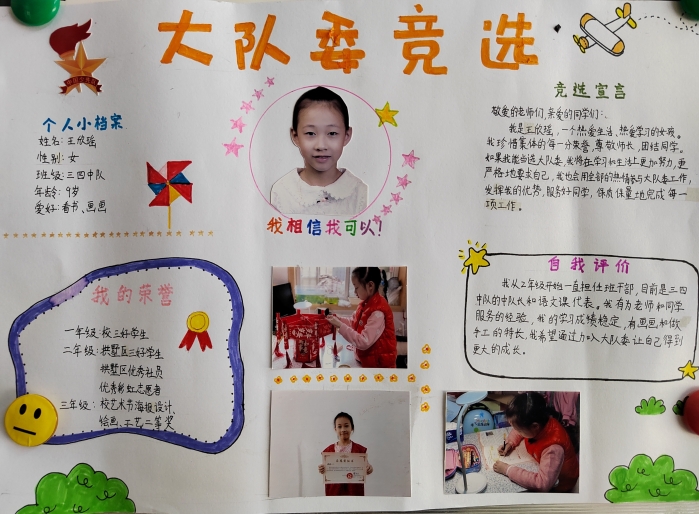 大队委竞选
个人小档案
姓名:王欣瑶
性别:女
班级:三四中队
年龄:9岁
爱好:看书、画画
我相信我可以!
竞选宣言
敬爱的老师们,亲爱的同学们:
我是王欣瑶,一个热爱生活、热爱学习的女孩。
我珍惜集体的每一分荣誉,尊敬师长,团结同学。
如果我能当选大队委,我将在学习和生活上更加努力,更
严格地要求自己,我也会用全部的热情参与大队委工作,
发挥我的优势,服务好同学,保质保量地完成每一
项工作。
我的荣誉
一年级:校三好学生
二年级:拱墅区三好学生
拱墅区优秀社员
优秀彩虹志愿者
三年级:校艺术节海报设计、
绘画、工艺二等奖
自我评价
我从2年级开始一直担任班干部,目前是三四
中队的中队长和语文课代表。我有为老师和同学
服务的经验,我的学习成绩稳定,有画画和做
手工的特长,我希望通过加入大队委让自己得到
更大的成长。